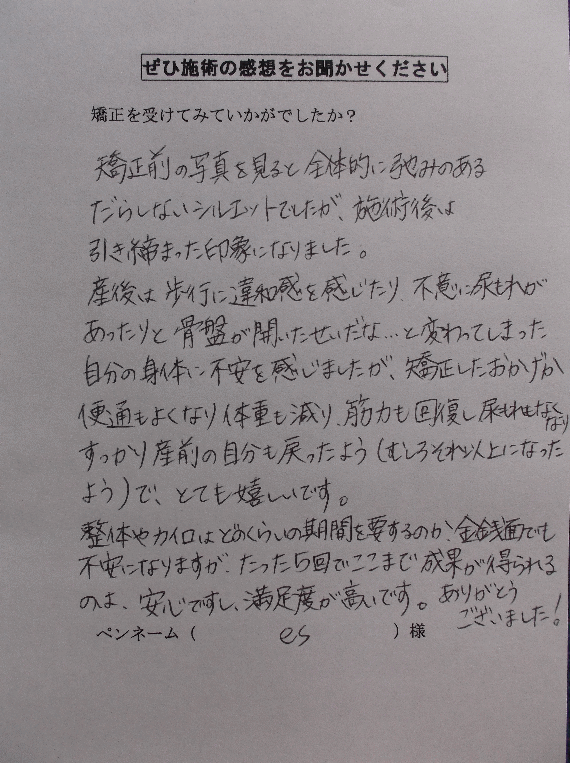 ぜひ施術の感想をお聞かせください
矯正を受けてみていかがでしたか？
矯正前の写真を見ると全体的に弛みのある
だらしないシルエットでしたが、施術後は
引き締まった印象になりました。
産後は歩行に違和感を感じたり、不意に尿もれが
あったりと骨盤が開いたせいだな…と変わってしまった
自分の身体に不安を感じましたが、矯正したおかげか
便通もよくなり体重も減り、筋力も回復し尿もれもなくなり
すっかり産前の自分も戻ったよう（むしろそれ以上になった
よう）で、とても嬉しいです。
整体やカイロはどのくらいの期間を要するのか、金銭面でも
不安になりますが、たった5回でここまで成果が得られる
のは、安心ですし、満足度が高いです。ありがとう
ございました！
ペンネーム（ es ）様